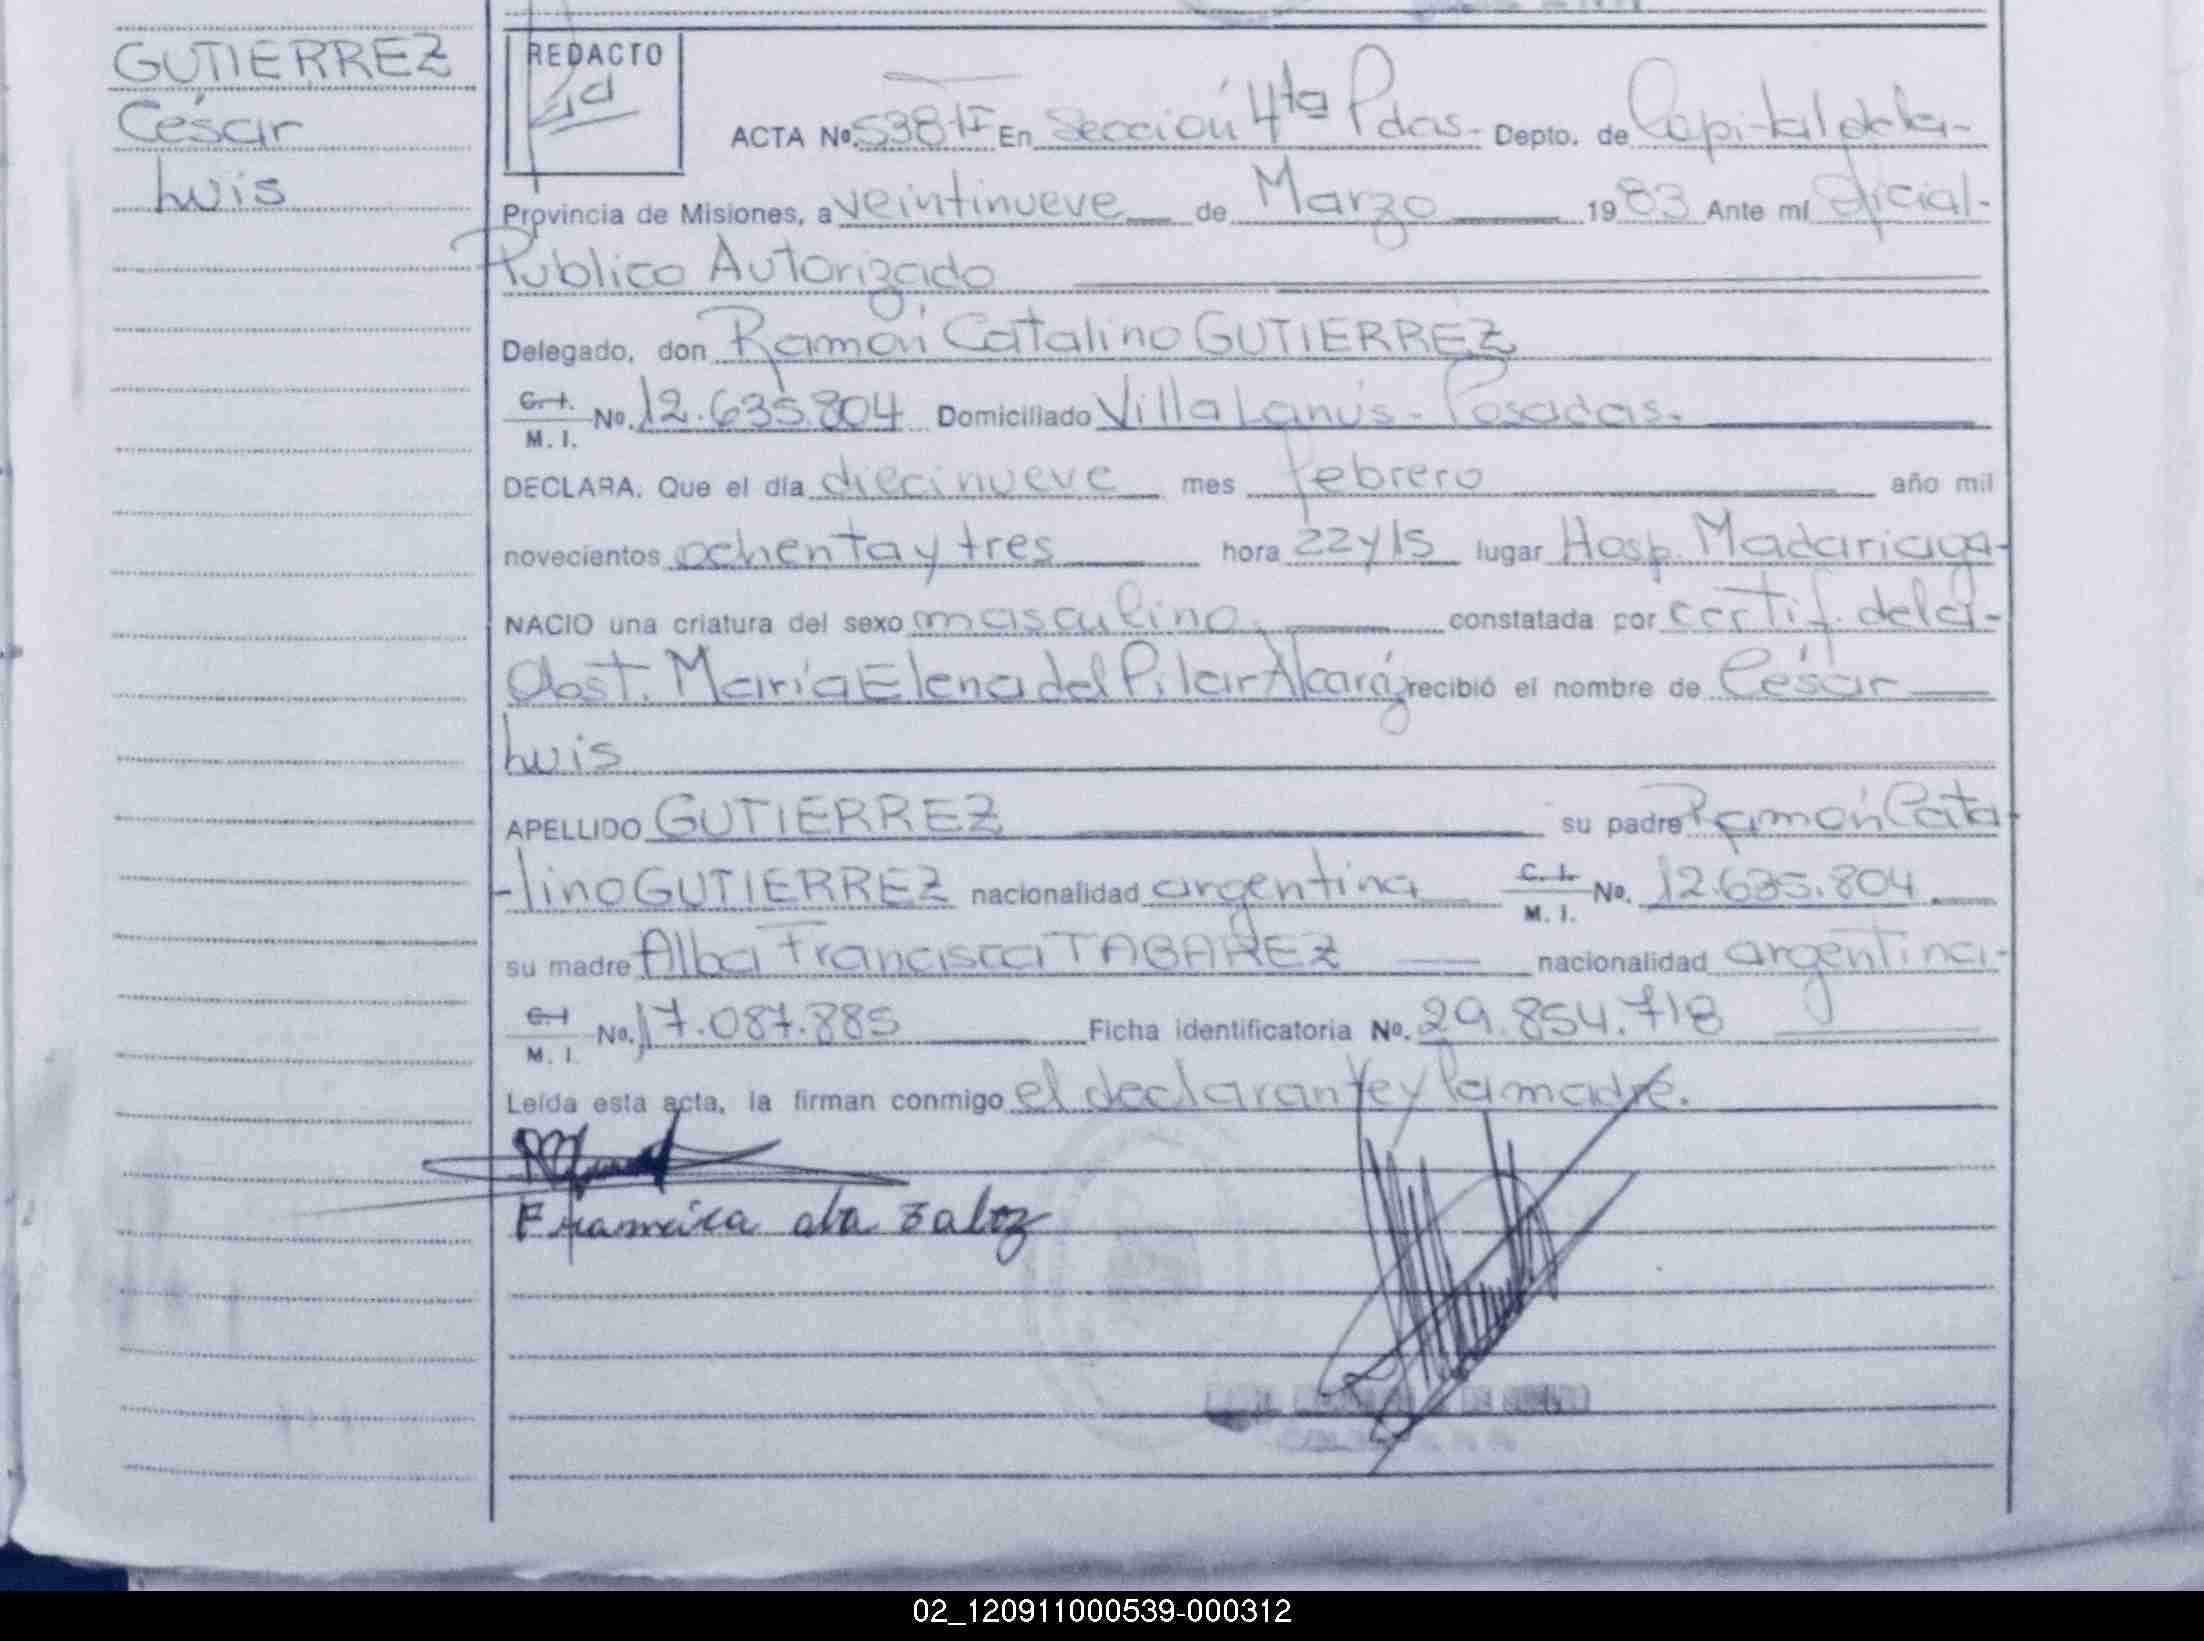 GUTIERREZ
César
Luis
REDACTO
ACTA Nº 538-TI En Sección 4ta Pdas- Depto. de Capital de la-
Provincia de Misiones, a veintinueve de Marzo 1983 Ante mí oficial-
Publico Autorizado
Delegado, don Ramón Catalino GUTIERREZ
C. I. M. I. No. 12.635.804 Domiciliado Villa Lanús - Posadas.
DECLARA: Que el día diecinueve mes febrero año mil
novecientos ochenta y tres hora 22 y 15 lugar Hosp. Madariaga-
NACIO una criatura del sexo masculino, constatada por certif. de la-
Obst. María Elena del Pilar Alcaráz recibió el nombre de César
Luis
APELLIDO GUTIERREZ su padre Ramón Cata
-lino GUTIERREZ nacionalidad argentina C. I. M. I. No. 12.635.804
su madre Alba Francisca TABAREZ nacionalidad argentina-
C. I M. I No. 17.087.885 Ficha identificatoria No. 29.854.718
Leída esta acta, la firman conmigo el declarante y la madre.
02_120911000539-000312